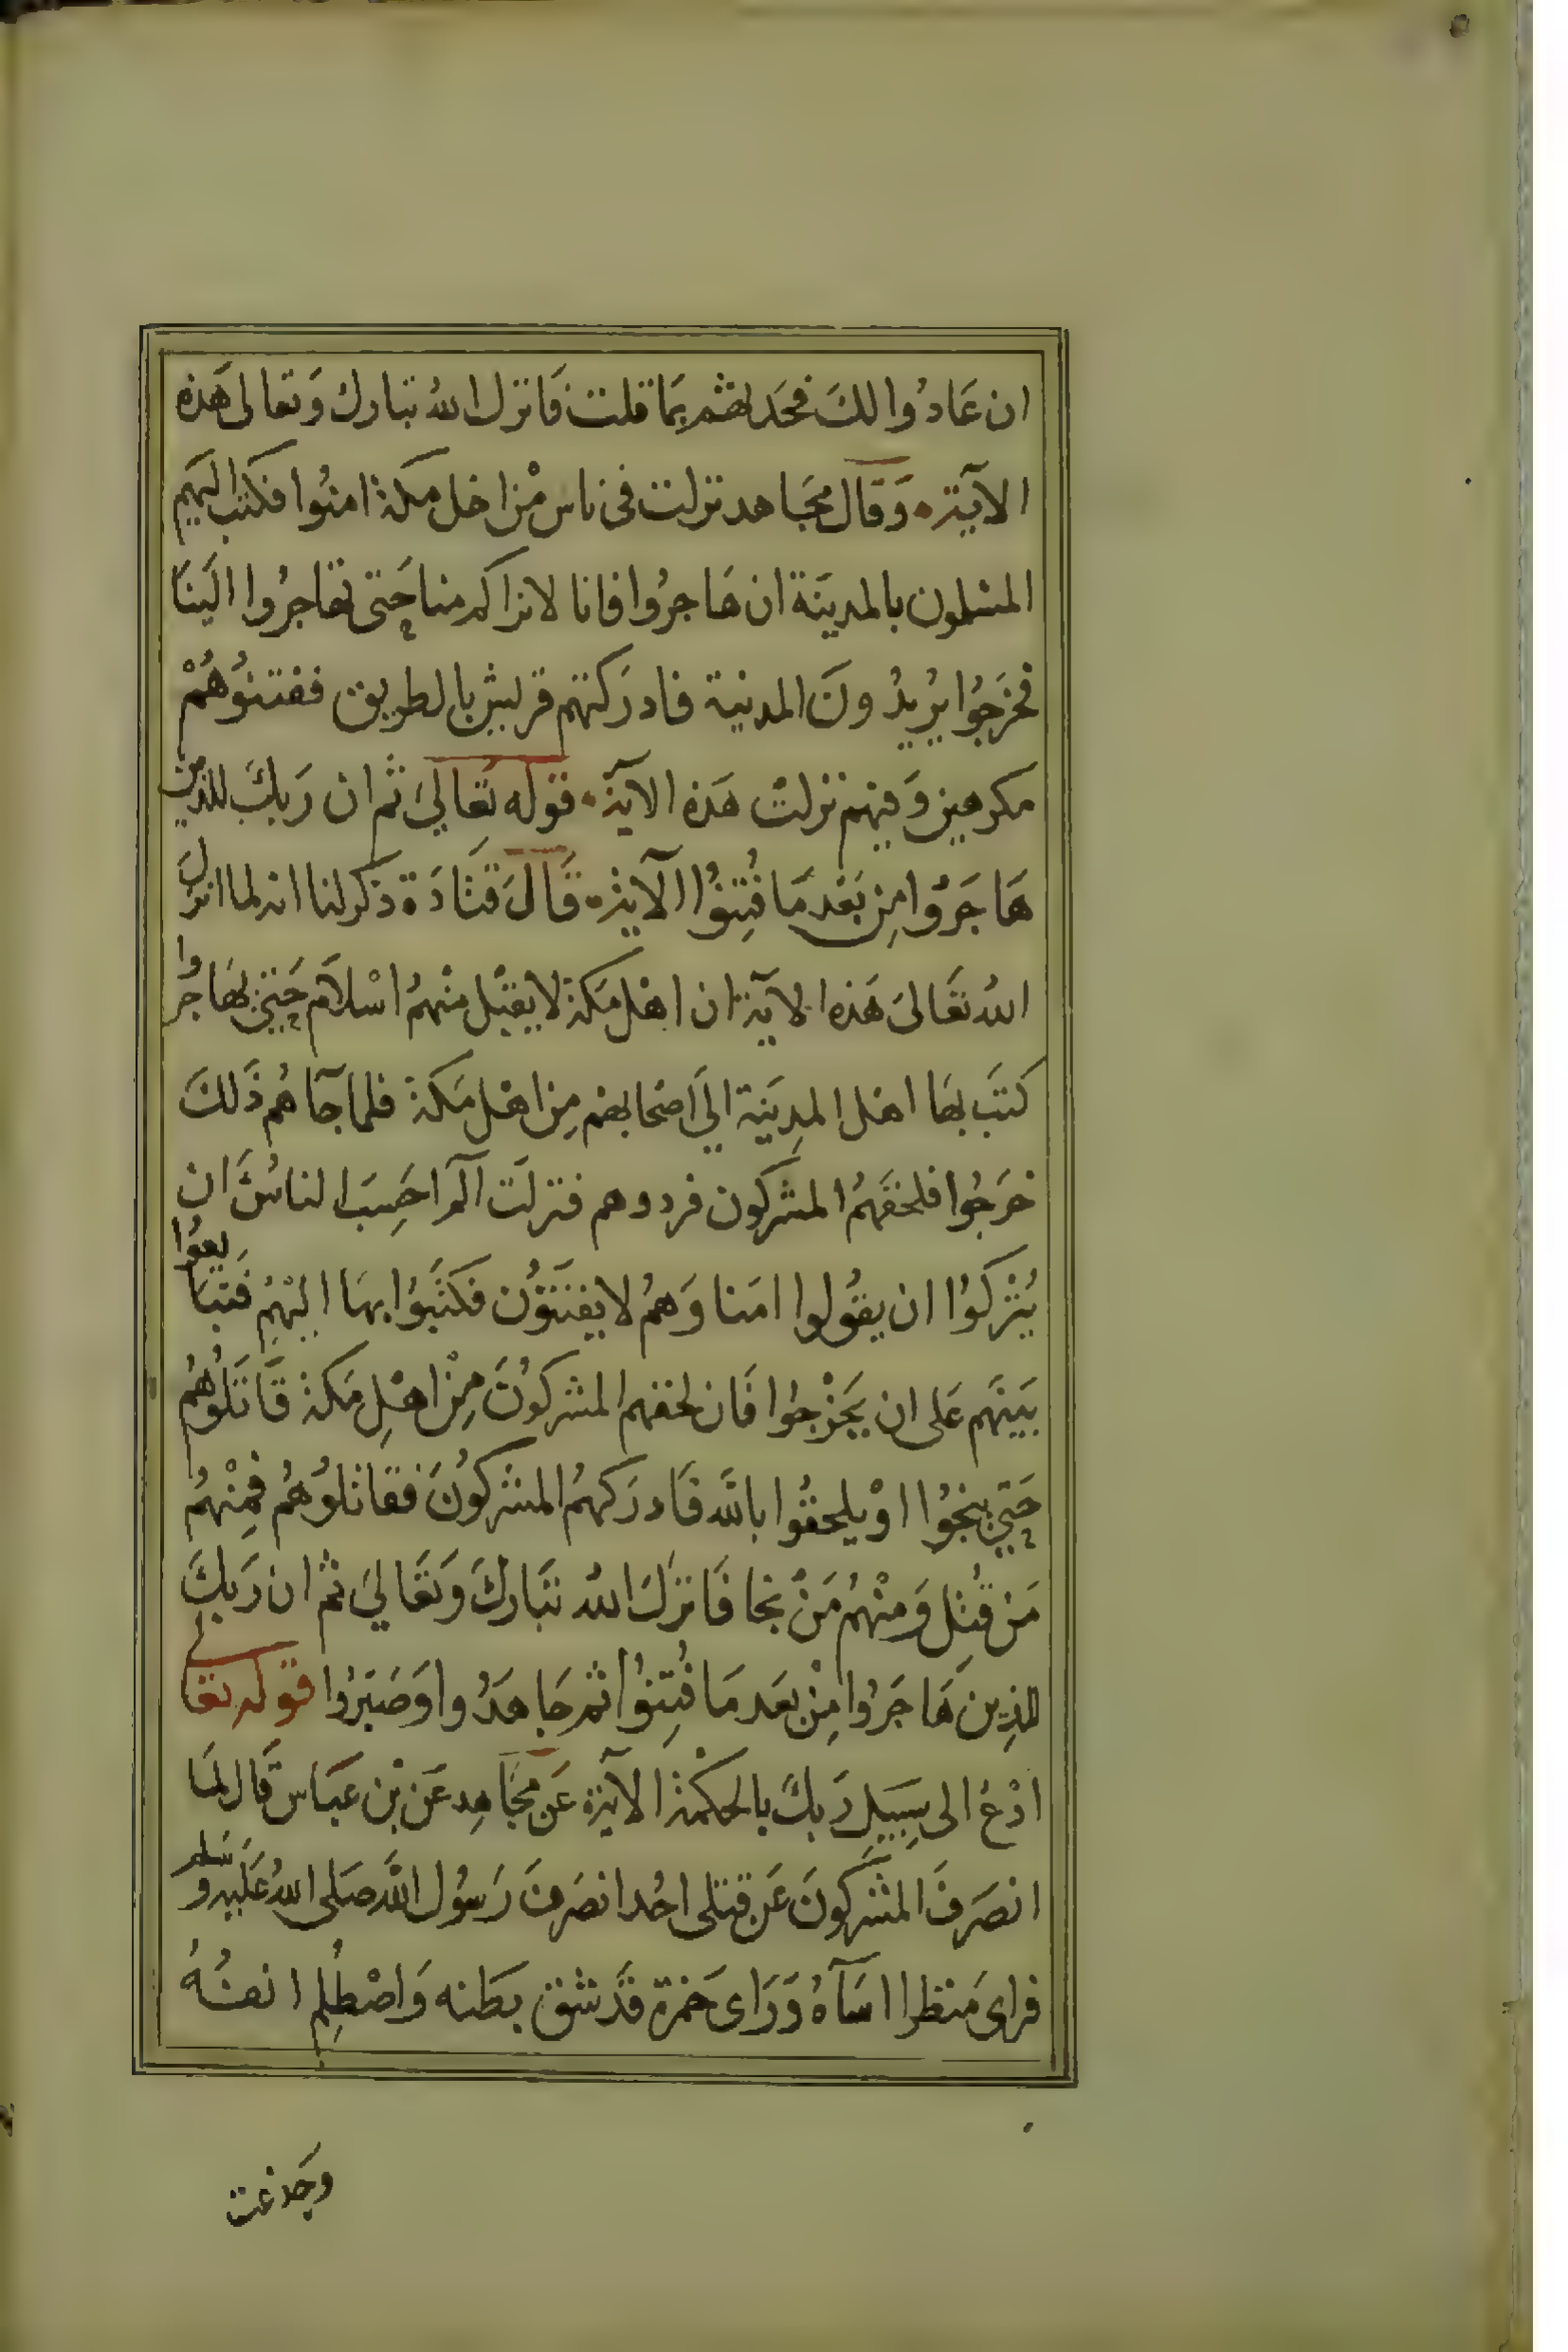 ان عَادُوا لكَ فعُد لهُم بمَا قلت فَانزل اللهُ تبارك وَتعالى هَذه
الآية وَقال مجَاهد نزلت فى ناس مْن اهل مكة امنُوا فكتب اليَهم
المسْلمون بالمدينَة ان هَاجرُوا فانا لا نراكم منا حَتى تهَاجرُوا اليَنَا
فخرَجُوا يرُيدُونَ المدينة فادرَكتهم قريش بالطريق ففتنوُهُمْ
مكرهين وَفيهم نزلتْ هَذه الآية قوله تعَالىَ ثم ان رَبكَ للذين
هَاجَرُوا مِن بَعْد مَا فُتِنوُا الآية قَالَ قتَادَة ذكر لنا انه لما انزلَ
اللهُ تعَالىَ هَذه الآية ان اهْل مَكة لا يقبْل منْهمُ اسْلاَم حَتىَ يهَاجرُوا
كتَب بهَا اهْل المدِينَة الىَ اصْحابهم مِن اهْل مَكة فلما جآهُم ذَلكَ
خرَجُوا فلحقَهمُ المشركون فردوهم فنزلَت آلم احَسِبَ الناسُ اَن
يُتْركوُا ان يقوُلوا امَنا وَهمُ لا يفتَنوُن فكتَبوُا بهَا اليْهِم فتبَايعوُا
بَينَهم عَلى ان يَخْرجُوا فَان لحقهم المشركوُنَ مِنْ اهْلِ مَكة قَاتلوُهُم
حَتي ينجُوا اوْ يلحقوُا باللَّه فَادرَكهمُ المشْركوُنَ فقاتلوُهُم فمِنْهمُ
مَن قتُل وَمنْهُم مَنْ نجا فَانزلَ اللهُ تبَاركَ وَتعَالىَ ثم ان رَبكَ
للذِين هَاجَرُوا مِنْ بعَد مَا فُتِنوُا ثم جَاهَدُوا وَصَبَرُوا قوله تعَالى
ادْعُ الى سَبِيلِ رَبكَ بالحكمْة الآية عَن مجَاهِد عَن بْن عبَاس قَال لمَا
انصَرفَ المشْركونَ عَن قتلى احُد انصَرفَ رَسوُل اللَّه صَلى اللهُ عَليه وَسَلم
فراى مَنظرا اسَآهُ وَرَاى حَمزة قدَ شق بطنه وَاصْطُلِم انفُهُ
وجدعت